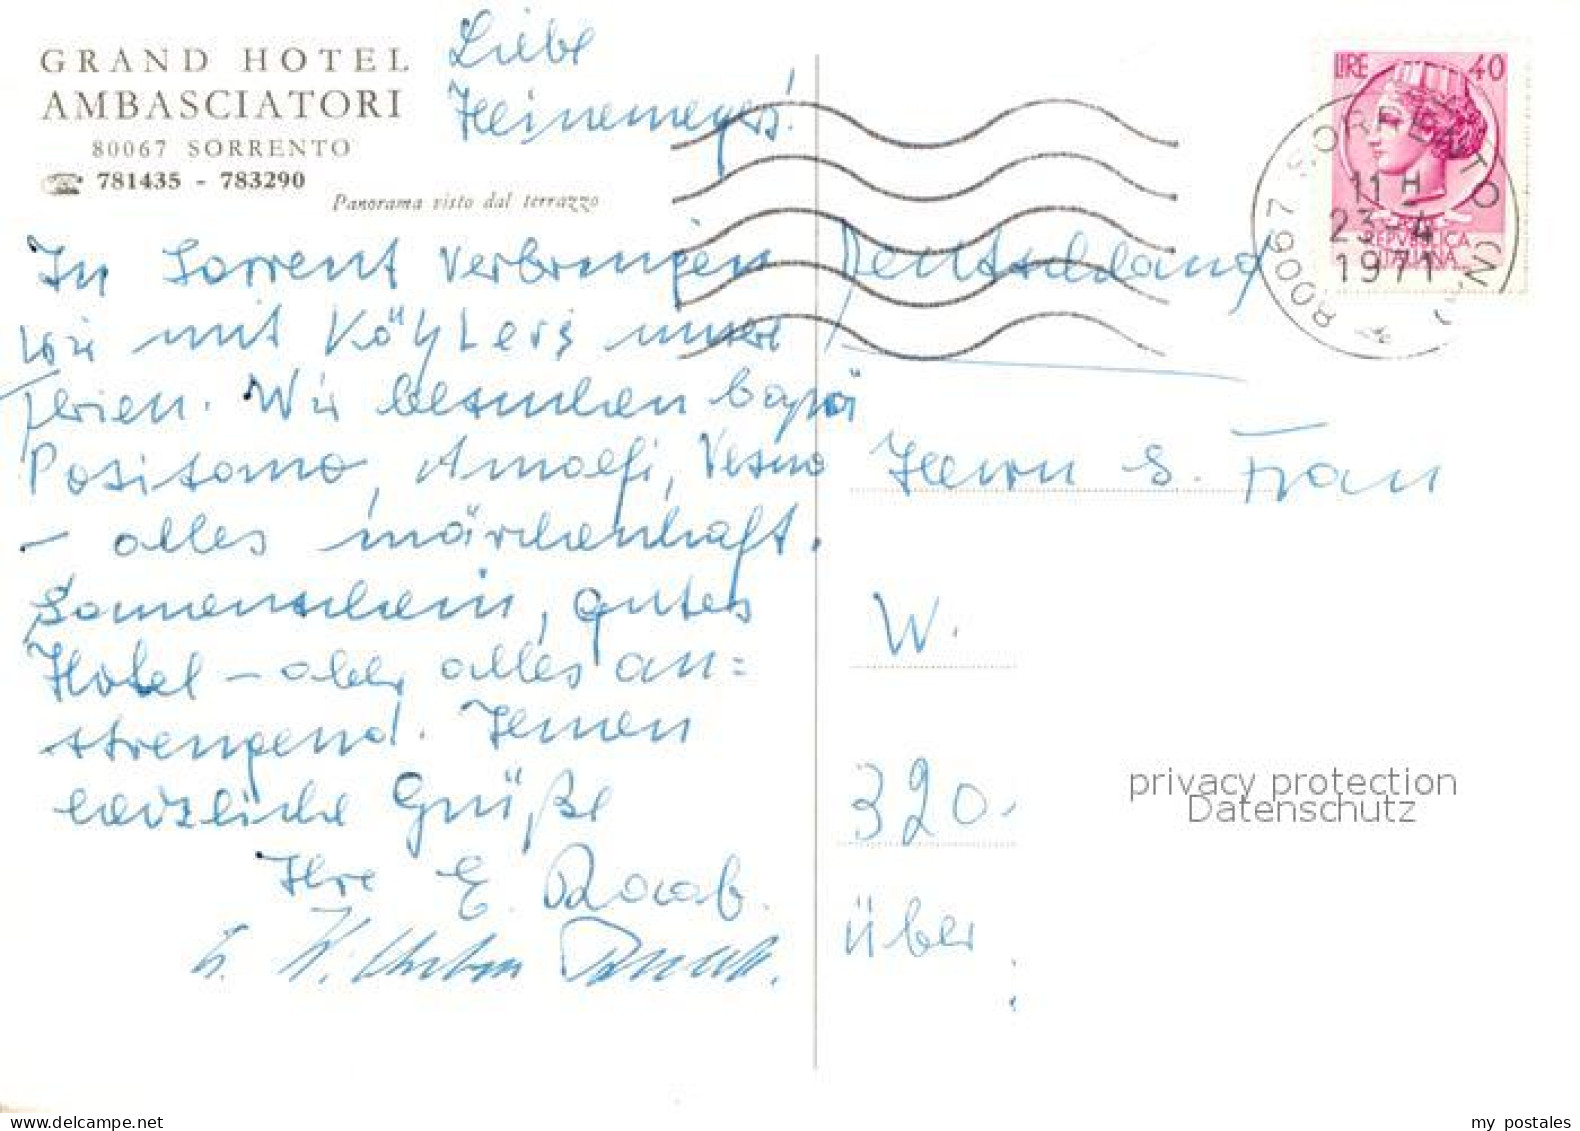 GRAND HOTEL
AMBASCIATORI
80067 SORRENTO
☎ 781435 - 783290
Panorama visto dal terrazzo
Liebe
Heinemeyers!
In Sorrent verbringen
wir mit unsere
Ferien. Wir besuchen
Positano, Amalfi, Vesuv
- alles märchenhaft.
Sonnenschein, gutes
Hotel - aber alles an=
strengend. Ihnen
herzliche Grüße
Ihre E. Raab.
LIRE 40
REPVBBLICA
ITALIANA
80067 SORRENTO (NA)
11 H
23-4
1971
Deutschland
Herrn u. Frau
W.
320
über
privacy protection
Datenschutz
my postales